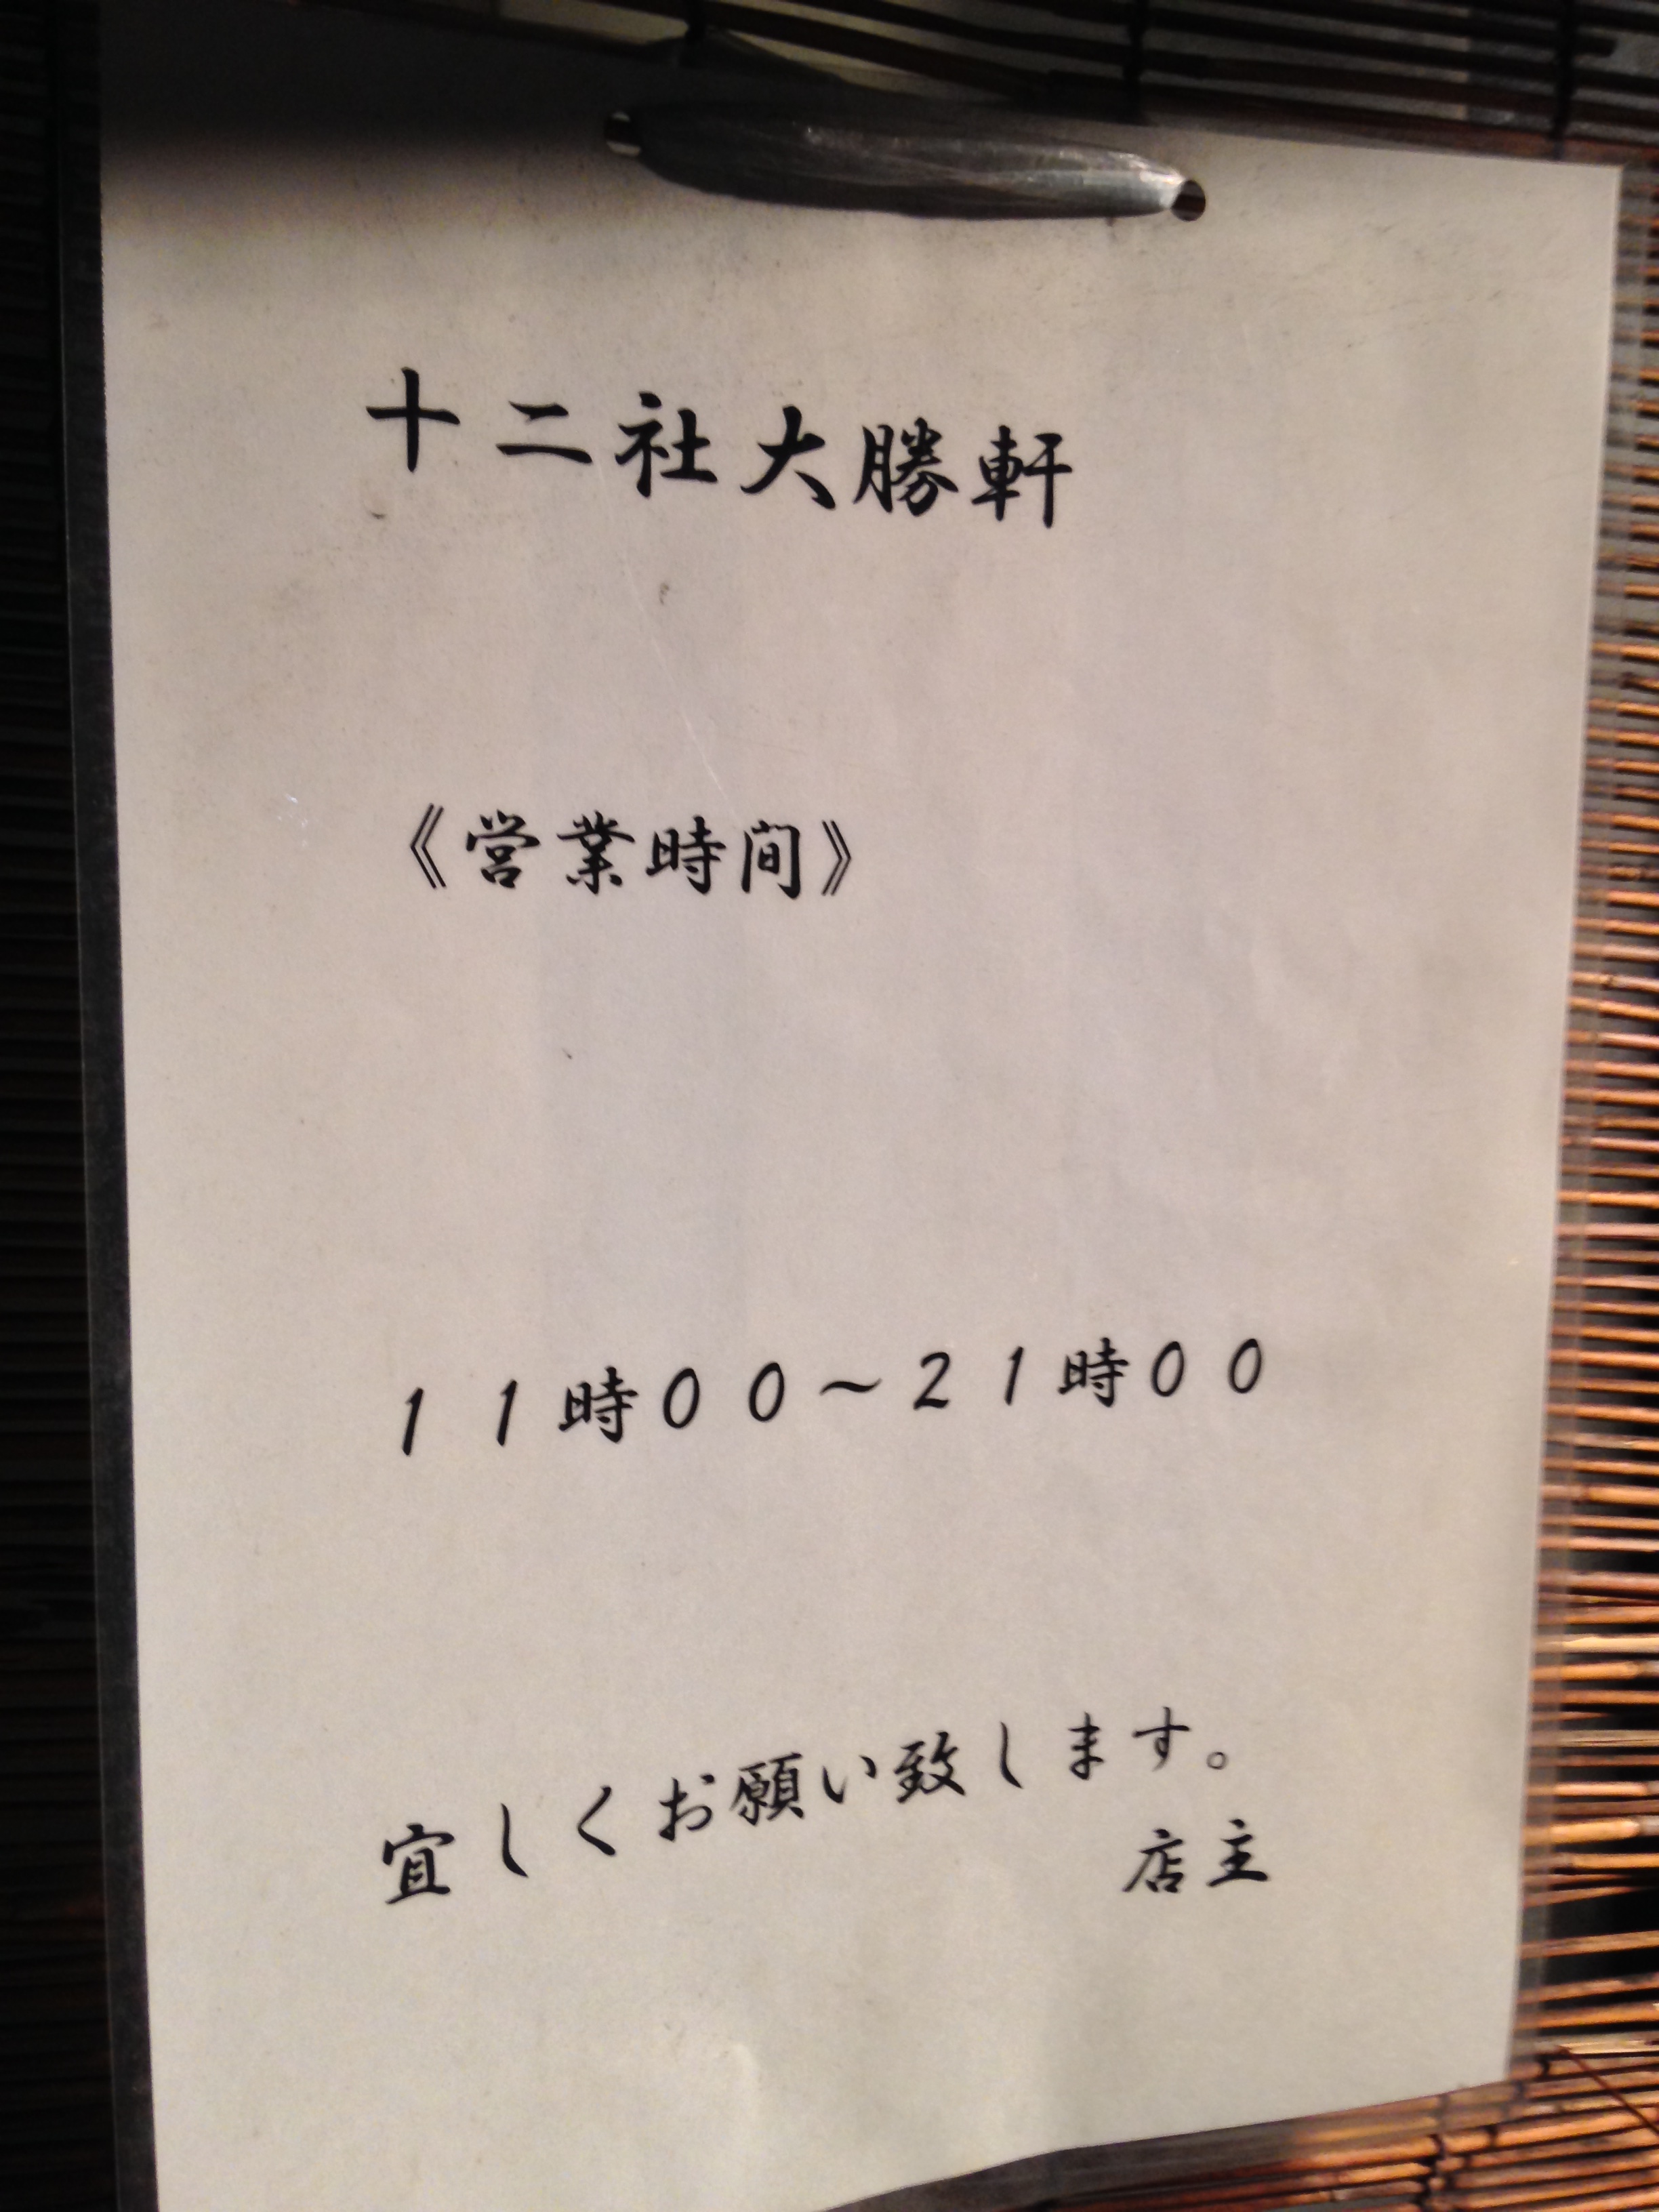 十二社大勝軒
《営業時間》
１１時００～２１時００
宜しくお願い致します。
店主